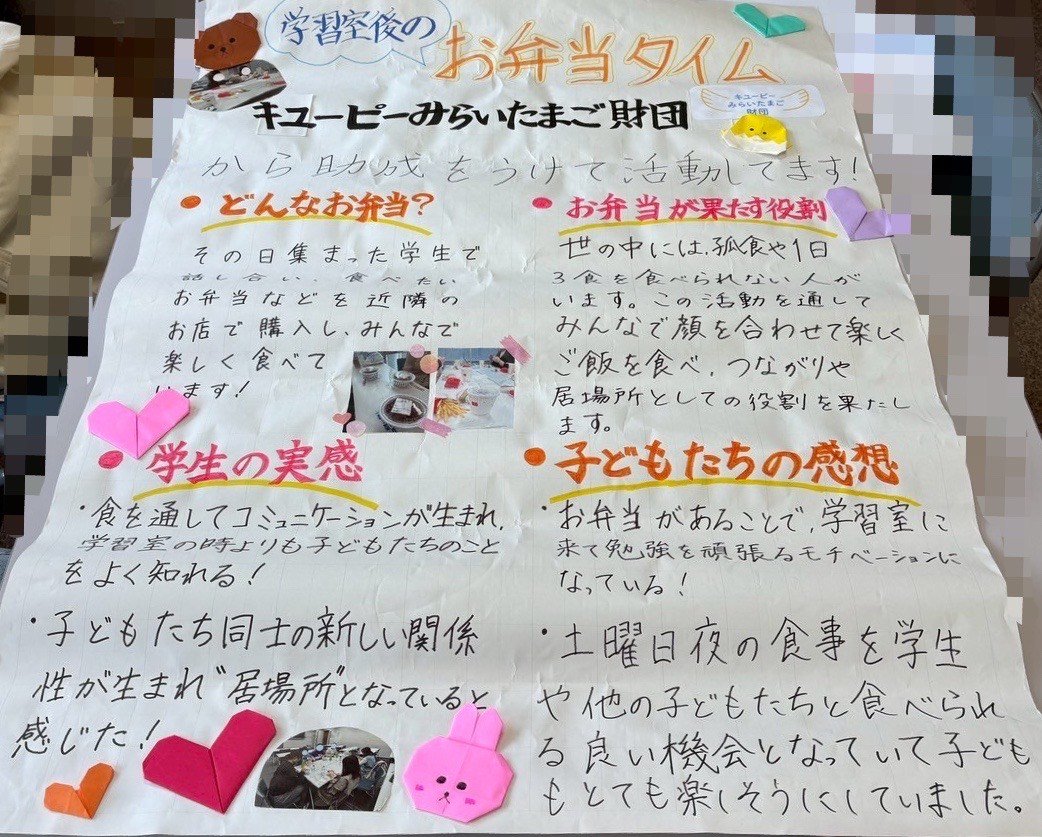 学習室後の
お弁当タイム
キューピーみらいたまご財団
キューピー
みらいたまご
財団
から助成をうけて活動してます!
・どんなお弁当?
その日集まった学生で
話し合い、食べたい
お弁当などを近隣の
お店で購入し、みんなで
楽しく食べて
います!
・お弁当が果たす役割
世の中には、孤食や1日
3食を食べられない人が
います。この活動を通して
みんなで顔を合わせて楽しく
ご飯を食べ、つながりや
居場所としての役割を果たし
ます。
・学生の実感
・食を通してコミュニケーションが生まれ、
学習室の時よりも子どもたちのこと
をよく知れる!
・子どもたち同士の新しい関係
性が生まれ"居場所"となっていると
感じた!
・子どもたちの感想
・お弁当があることで、学習室に
来て勉強を頑張るモチベーションに
なっている!
・土曜日夜の食事を学生
や他の子どもたちと食べられ
る良い機会となっていて子ども
もとても楽しそうにしていました。